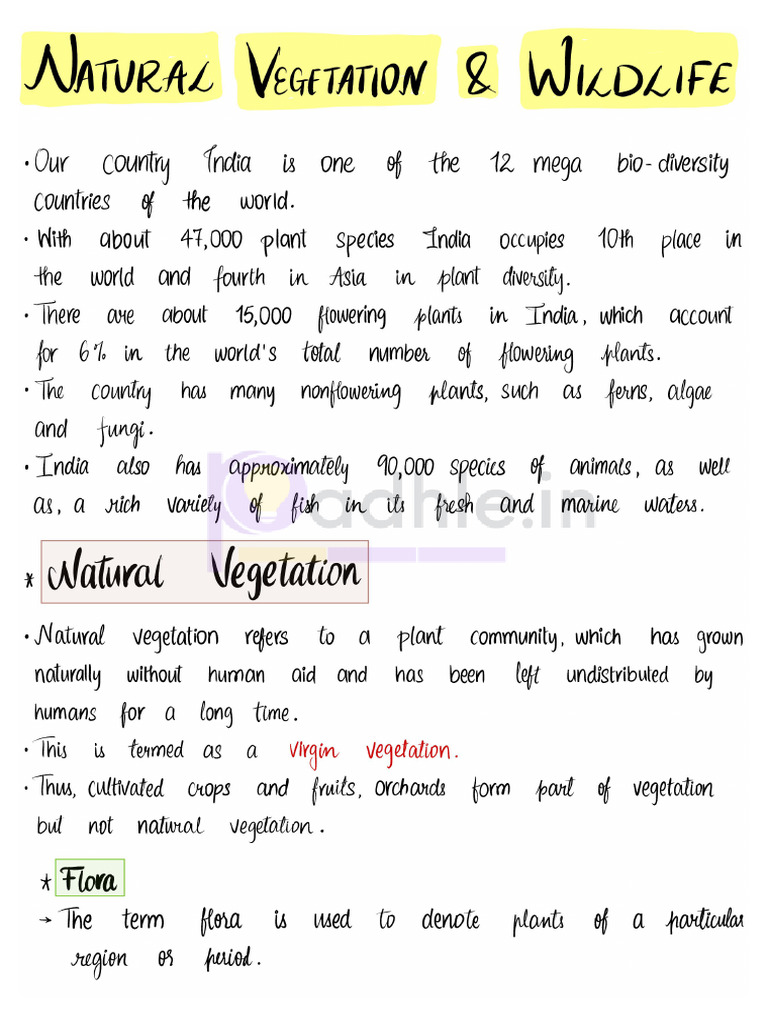 NATURAL VEGETATION & WILDLIFE
• Our country India is one of the 12 mega bio-diversity
countries of the world.
• With about 47,000 plant species India occupies 10th place in
the world and fourth in Asia in plant diversity.
• There are about 15,000 flowering plants in India, which account
for 6% in the world's total number of flowering plants.
• The country has many nonflowering plants, such as ferns, algae
and fungi.
• India also has approximately 90,000 species of animals, as well
as, a rich variety of fish in its fresh and marine waters.
Padhle.in
* Natural Vegetation
• Natural vegetation refers to a plant community, which has grown
naturally without human aid and has been left undistributed by
humans for a long time.
• This is termed as a virgin vegetation.
• Thus, cultivated crops and fruits, orchards form part of vegetation
but not natural vegetation.
* Flora
→ The term flora is used to denote plants of a particular
region or period.